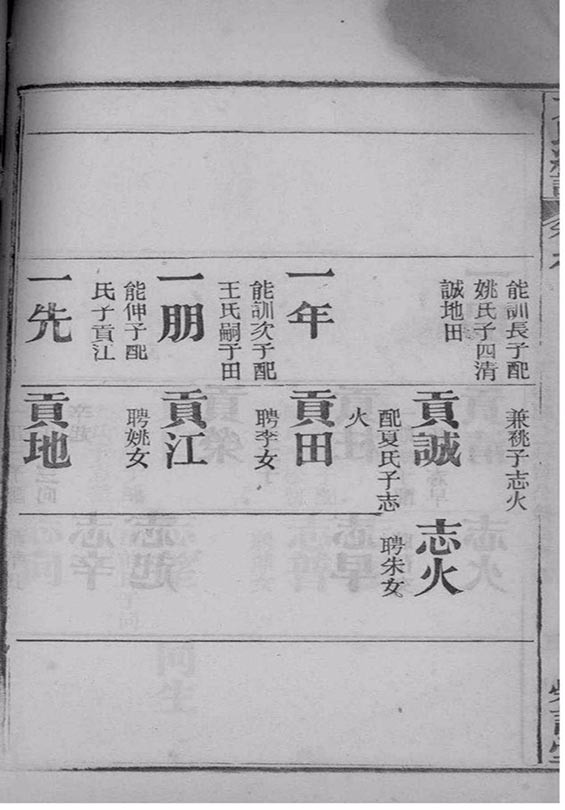 能訓長子配
姚氏子四清
誠地田
一年
能訓次子配
王氏嗣子田
一朋
能伸子配
氏子貢江
一先
兼祧子志火
貢誠
配夏氏子志
火
貢田
聘李女
貢江
聘姚女
貢地
志火
聘朱女